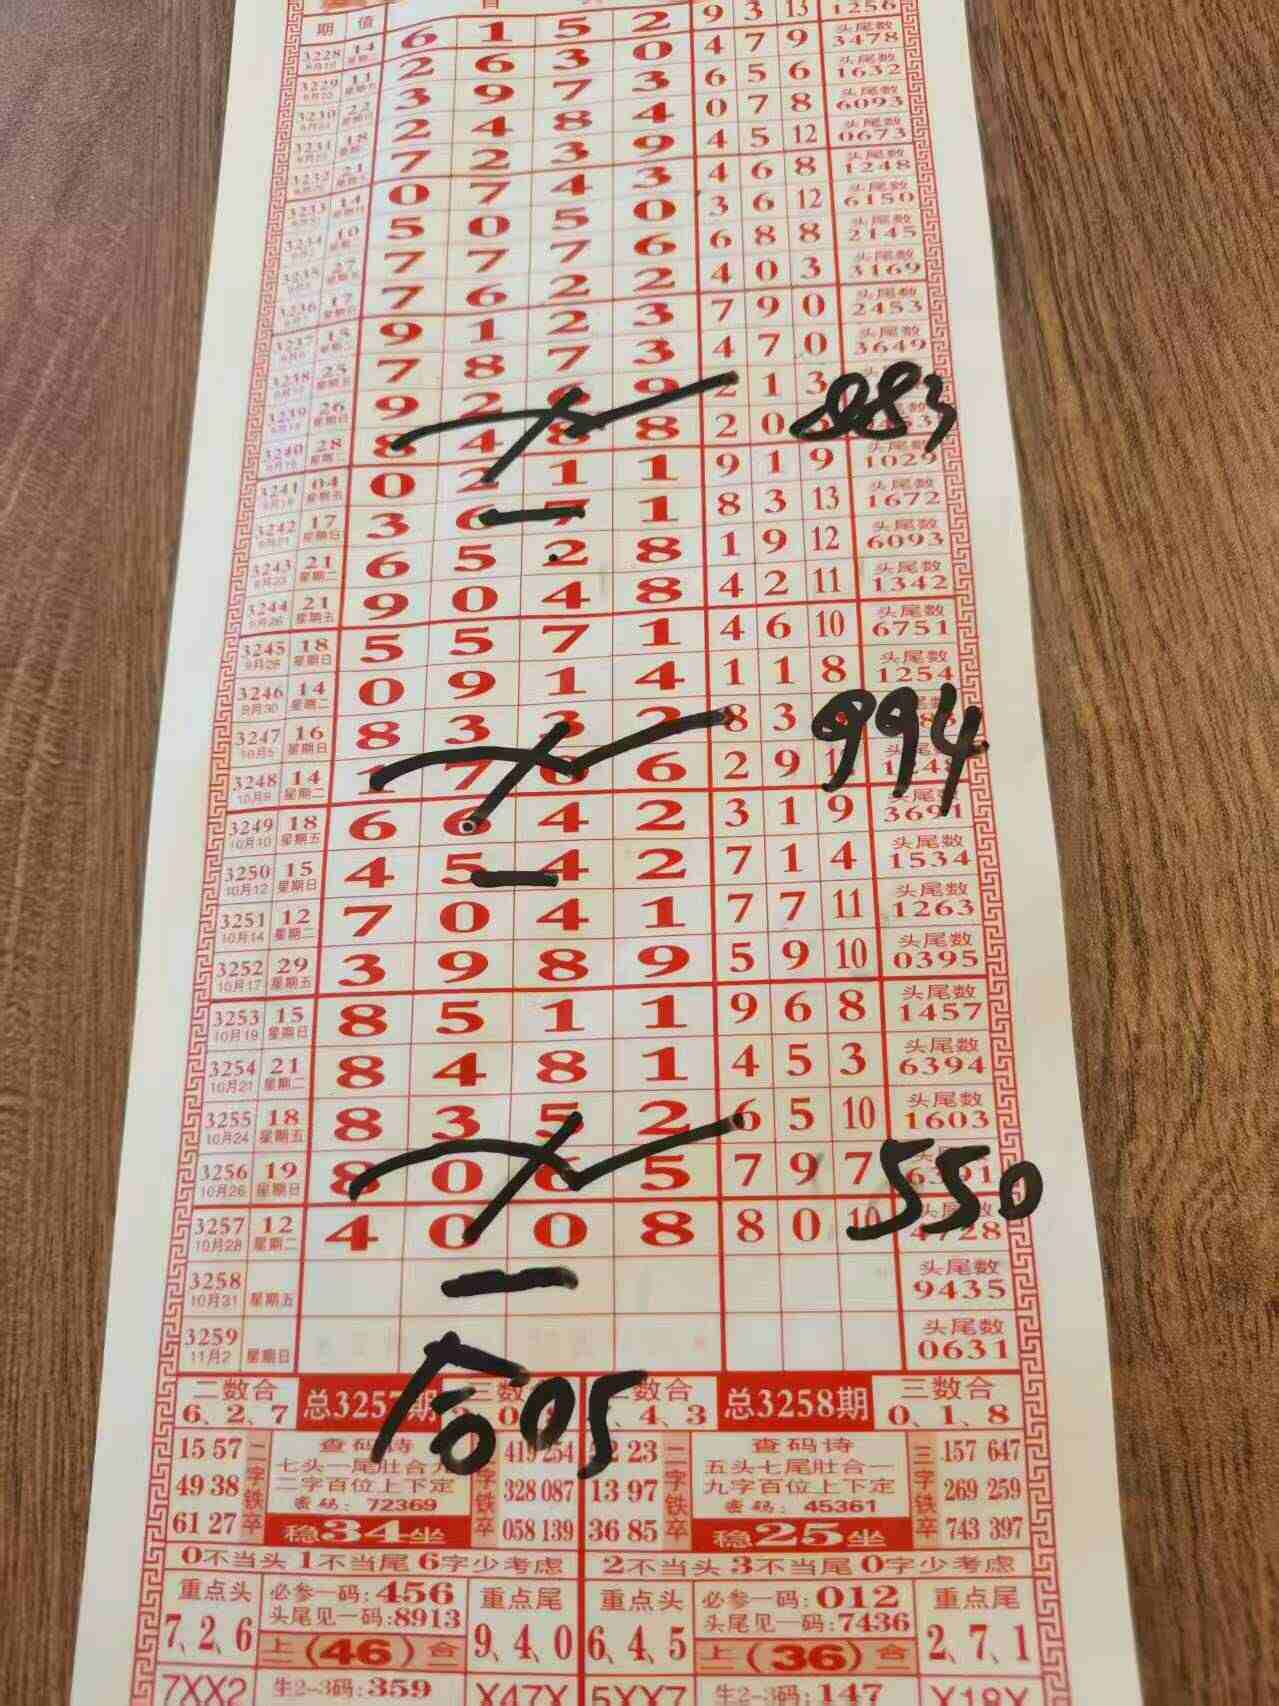 期 值 6 1 5 2 9 3 13 1256
3228 14 星期二 2 6 3 0 4 7 9 头尾数 3478
3229 11 3 9 7 3 6 5 6 头尾数 1632
3230 22 2 4 8 4 0 7 8 头尾数 6093
3231 18 7 2 3 9 4 5 12 头尾数 0673
3232 21 0 7 4 3 4 6 8 头尾数 1248
3233 14 5 0 5 0 3 6 12 头尾数 6150
3234 10 7 7 7 6 6 8 8 头尾数 2145
3235 27 7 6 2 2 4 0 3 头尾数 3169
3236 17 9 1 2 3 7 9 0 头尾数 2453
3237 15 7 8 7 3 4 7 0 头尾数 3649
3238 25 星期五 9 2 9 2 1 3
883
3239 26 星期日 8 4 8 8 2 0
3240 28 星期二 0 2 1 1 9 1 9 头尾数 1029
3241 04 星期五 3 6 7 1 8 3 13 头尾数 1672
3242 9月21 17 星期日 6 5 2 8 1 9 12 头尾数 6093
3243 9月23 21 星期二 9 0 4 8 4 2 11 头尾数 1342
3244 9月26 21 星期五 5 5 7 1 4 6 10 头尾数 6751
3245 9月28 18 星期日 0 9 1 4 1 1 8 头尾数 1254
3246 9月30 14 星期二 8 3 3 2 8 3
994
3247 10月5 16 星期日 1 7 6 2 9
3248 14 星期二 6 6 4 2 3 1 9 头尾数 3691
3249 10月10 18 星期五 4 5 4 2 7 1 4 头尾数 1534
3250 10月12 15 星期日 7 0 4 1 7 7 11 头尾数 1263
3251 10月14 12 星期二 3 9 8 9 5 9 10 头尾数 0395
3252 10月17 29 星期五 8 5 1 1 9 6 8 头尾数 1457
3253 10月19 15 星期日 8 4 8 1 4 5 3 头尾数 6394
3254 10月21 21 星期二 8 3 5 2 6 5 10 头尾数 1603
3255 10月24 18 星期五 8 0 6 5 7 9 7 6391
550
3256 10月26 19 星期日 4 0 0 8 8 0 10 4728
3257 10月28 12 星期二
3258 10月31 星期五 头尾数 9435
3259 11月2 星期日 头尾数 0631
合05
二数合 6、2、7 总3257期 三数合
二数合 4、3 总3258期 三数合 0、1、8
15 57
49 38
61 27
二字铁卒
查码诗
七头一尾肚合
二字百位上下定
密码：72369
稳34坐
字铁卒
419 254
328 087
058 139
23
13 97
36 85
二字铁卒
查码诗
五头七尾肚合一
九字百位上下定
密码：45361
稳25坐
三字铁卒
157 647
269 259
743 397
0不当头1不当尾6字少考虑
2不当头3不当尾0字少考虑
重点头 7、2、6
必参一码:456
头尾见一码:8913
上(46)合
重点尾 9、4、0
重点头 6、4、5
必参一码:012
头尾见一码:7436
上(36)合
重点尾 2、7、1
7XX2 生2-3码:359 X47X 5XX7 生2-3码:147 X18X